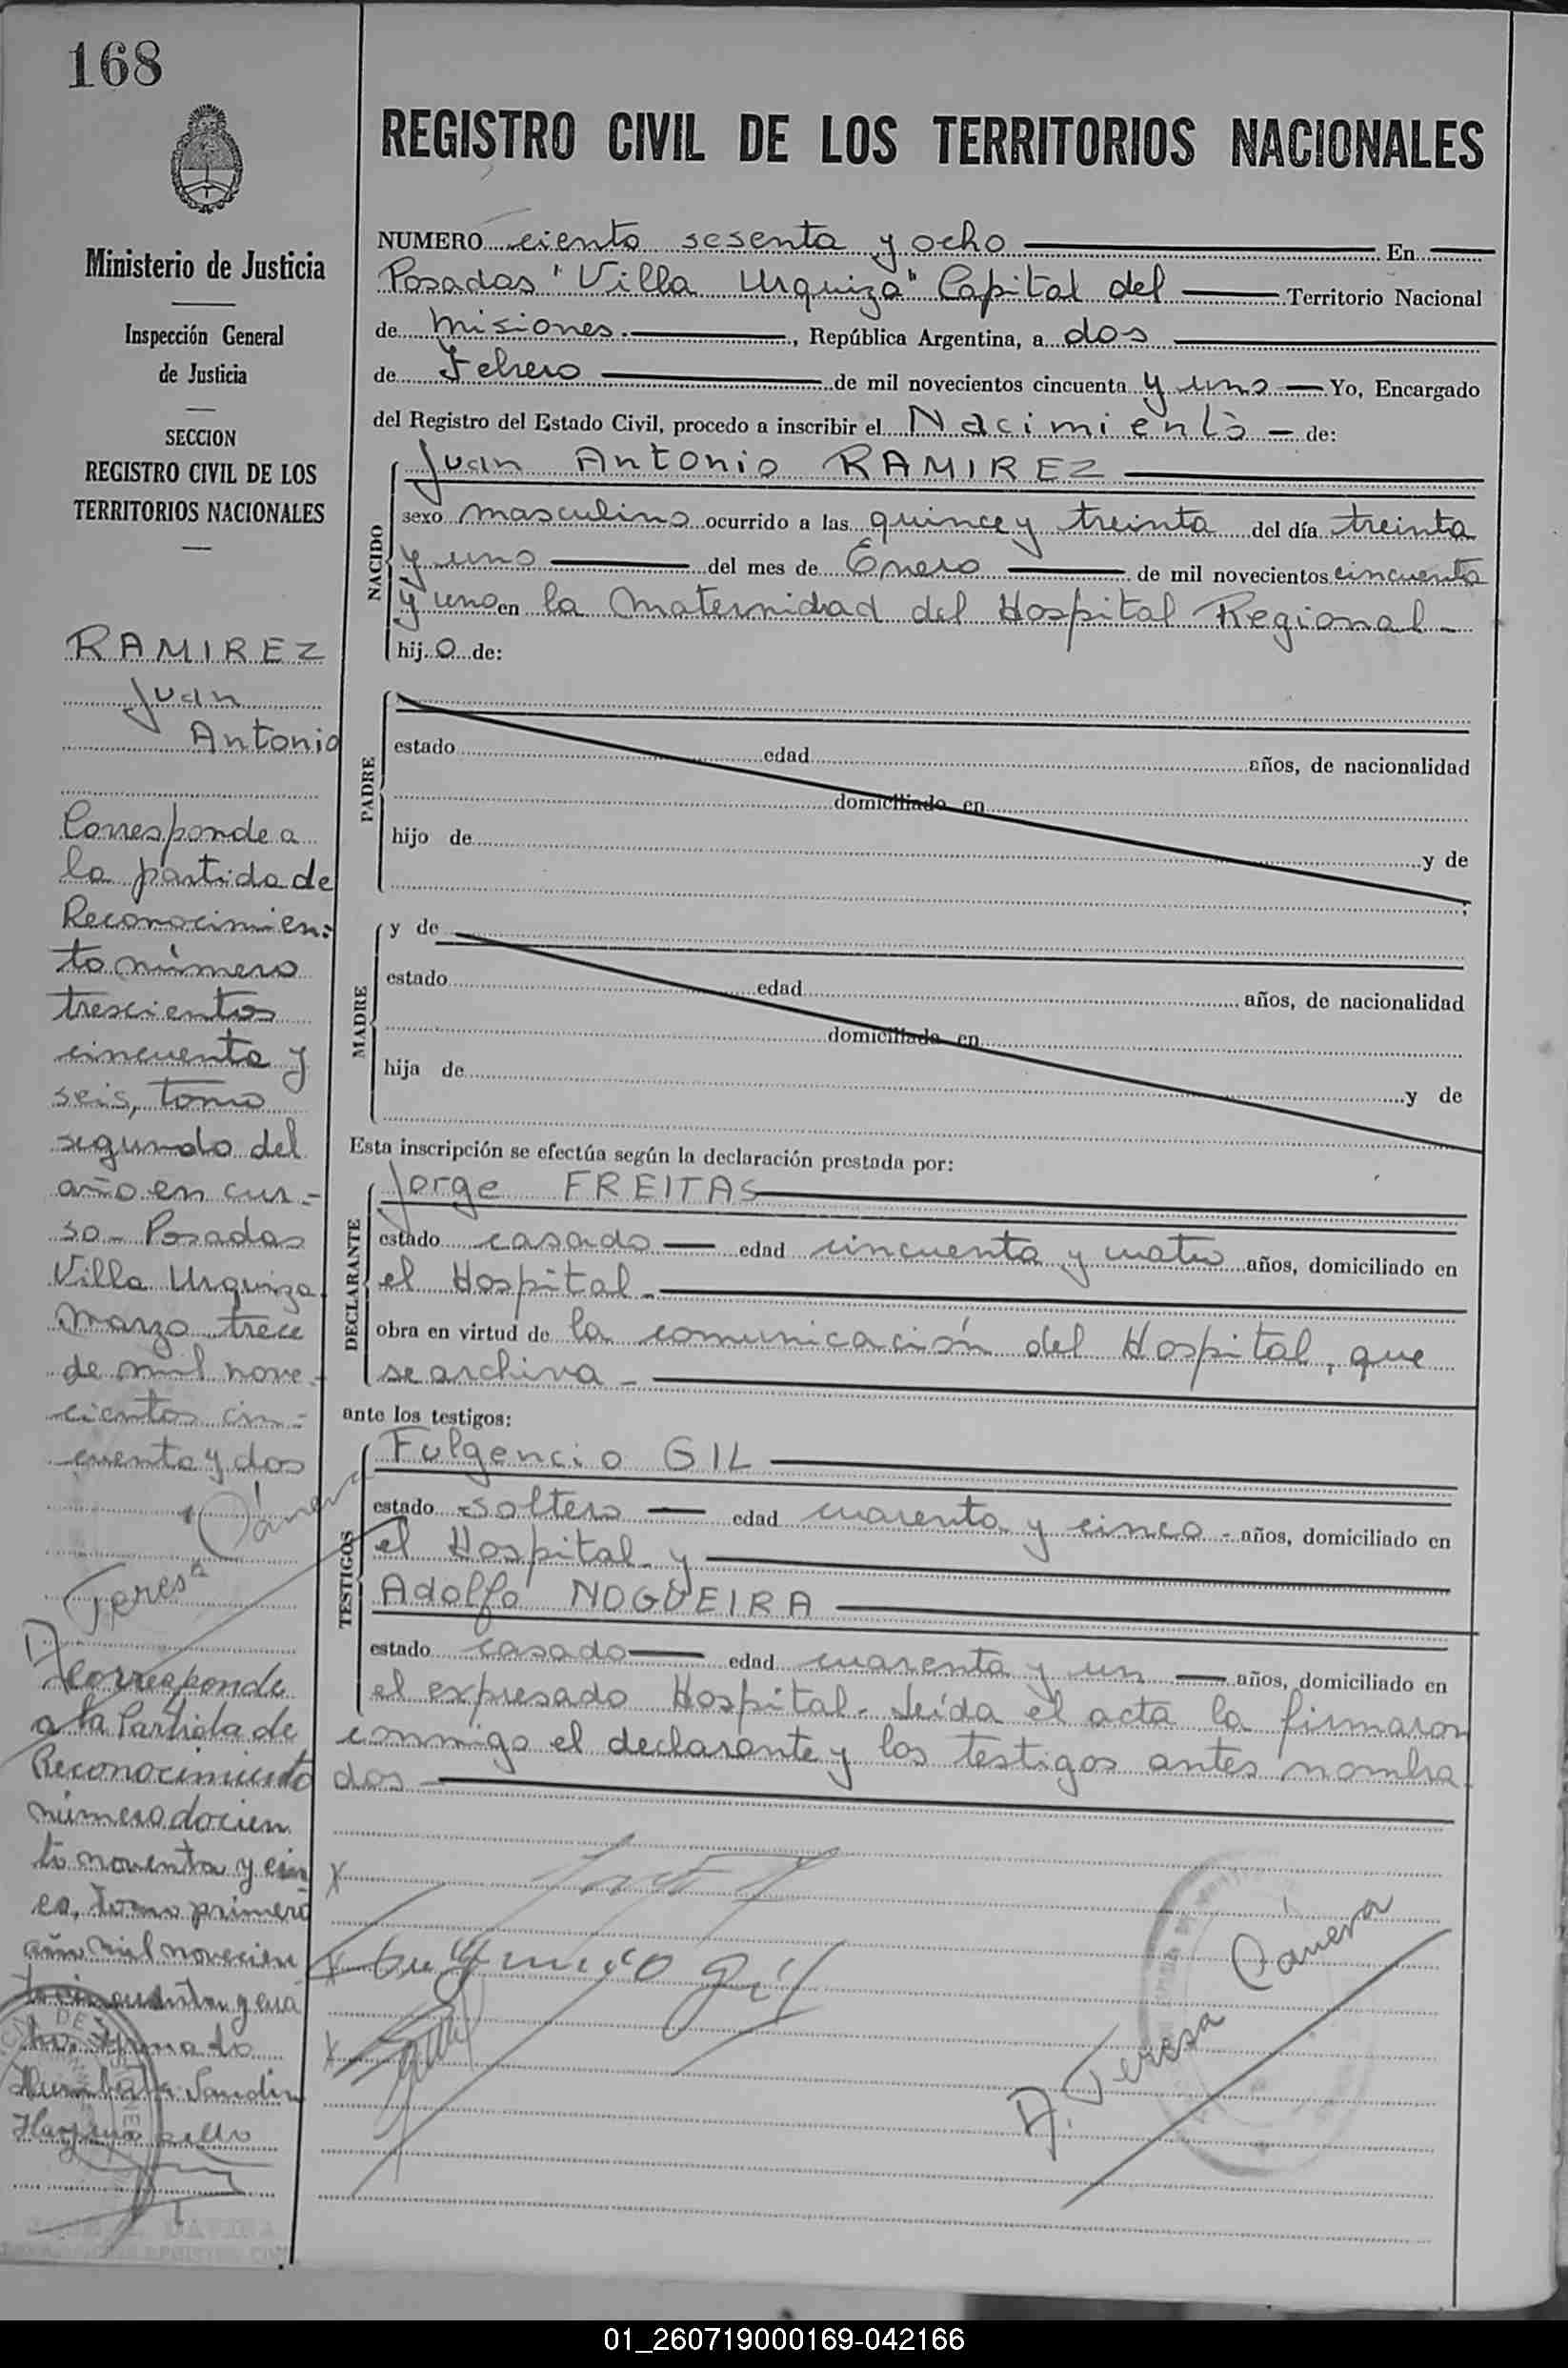 168
Ministerio de Justicia
Inspección General
de Justicia
SECCION
REGISTRO CIVIL DE LOS
TERRITORIOS NACIONALES
RAMIREZ
Juan
Antonio
Corresponde a
la partida de
Reconocimien=
to número
trescientos
cincuenta y
seis, tomo
segundo del
año en cur-
so - Posadas
Villa Urquiza
marzo trece
de mil nove-
cientos cin=
cuenta y dos
A. Teresa Cánera
Corresponde
a la Partida de
Reconocimiento
número docien
to noventa y cin
co, tomo primero
año mil novecien
to cincuenta y cua
REGISTRO CIVIL DE LOS TERRITORIOS NACIONALES
NUMERO ciento sesenta y ocho En
Posadas "Villa Urquiza" Capital del Territorio Nacional
de Misiones. , República Argentina, a dos
de Febrero de mil novecientos cincuenta y uno Yo, Encargado
del Registro del Estado Civil, procedo a inscribir el Nacimiento - de:
NACIDO
Juan Antonio RAMIREZ
sexo masculino ocurrido a las quince y treinta del día treinta
y uno del mes de Enero de mil novecientos cincuenta
y uno en la Maternidad del Hospital Regional -
hij o de:
PADRE
estado edad años, de nacionalidad
domiciliado en
hijo de y de
;
MADRE
y de
estado edad años, de nacionalidad
domiciliada en
hija de y de
Esta inscripción se efectúa según la declaración prestada por:
DECLARANTE
Jorge FREITAS
estado casado edad cincuenta y cuatro años, domiciliado en
el Hospital -
obra en virtud de la comunicación del Hospital, que
se archiva -
ante los testigos:
TESTIGOS
Fulgencio GIL
estado soltero edad cuarenta y cinco - años, domiciliado en
el Hospital - y
Adolfo NOGUEIRA
estado casado edad cuarenta y un años, domiciliado en
el expresado Hospital. Leída el acta la firmaron
conmigo el declarante y los testigos antes nombra-
dos
Fulgencio Gil
A. Teresa Cánera
01_260719000169-042166